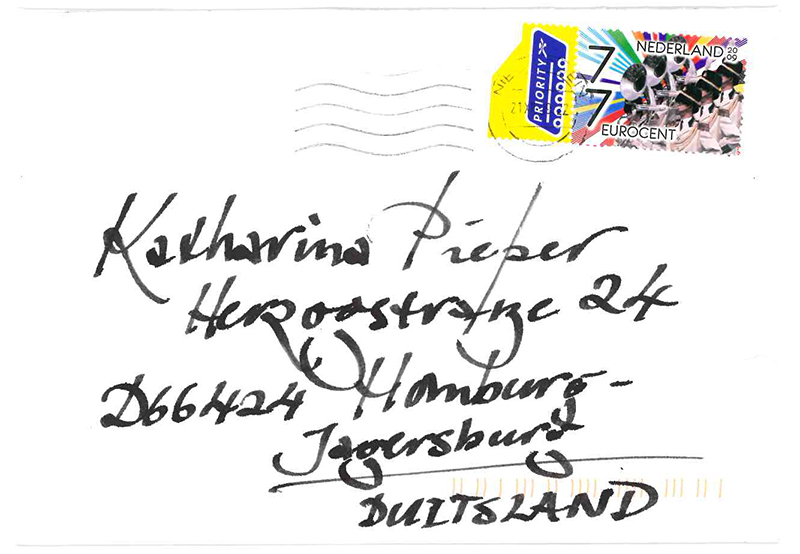 PRIORITY
NEDERLAND 2009
77
EUROCENT
Katharina Pieper
Herzogstraße 24
D66424 Homburg-
Jagersburg
DUITSLAND